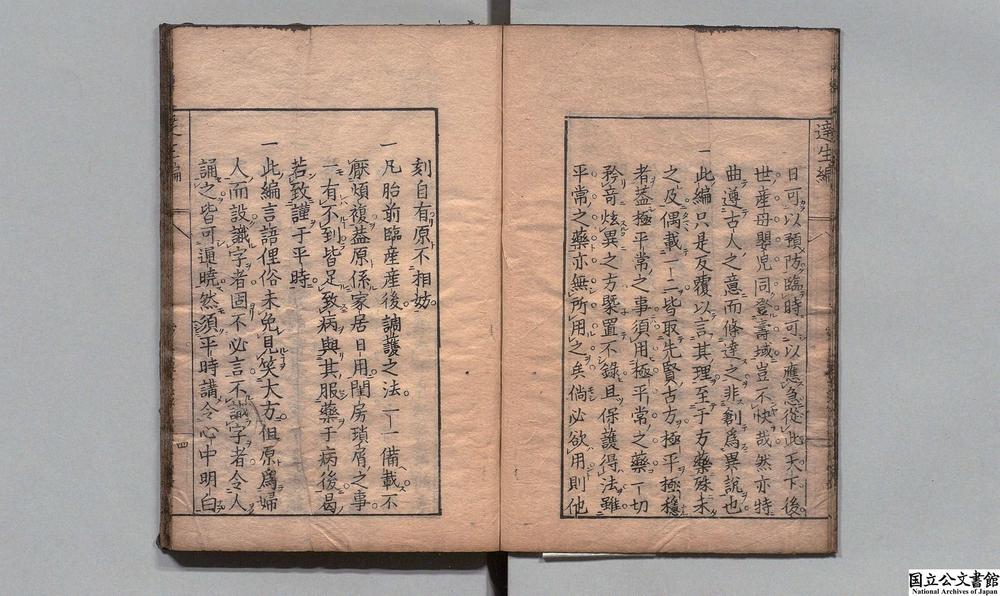 達生編
日可以預防臨時可以應急從此天下後
世産母嬰児同登壽域豈不快哉然亦特
曲遵古人之意而條達之非創爲異說也
一此編只是反覆以言其理至于方藥殊未
之及偶載一二皆取先賢古方極平極穩
者蓋極平常之事須用極平常之藥一切
矜奇炫異之方槩置不錄且保護得法雖
平常之藥亦無所用之矣倘必欲用則他
刻自有原不相妨
一凡胎前臨産産後調護之法一一備載不
厭煩複蓋原係家居日用閨房瑣屑之事
一有不到皆足致病與其服藥于病後曷
若致謹于平時
一此編言語俚俗未免見笑大方但原爲婦
人而設識字者固不必言不識字者令人
誦之皆可通曉然須平時講令心中明白
四
国立公文書館
National Archives of Japan